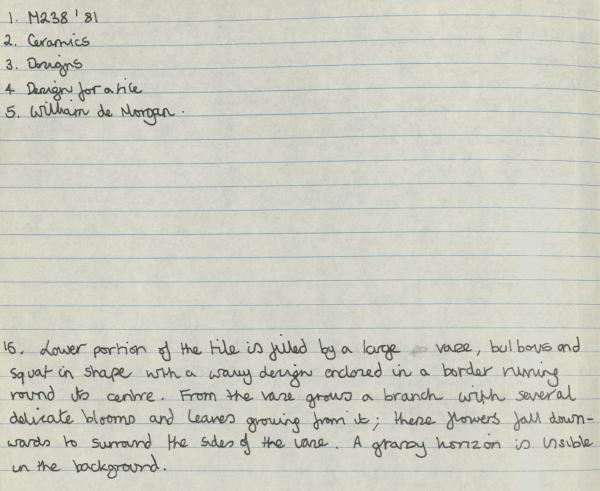 1. M238 '81
2. Ceramics
3. Designs
4 Design for a tile
5. William de Morgan.
15. Lower portion of the tile is filled by a large vase, bulbous and
squat in shape with a wavy design enclosed in a border running
round its centre. From the vase grows a branch with several
delicate blooms and leaves growing from it; these flowers fall down-
wards to surround the sides of the vase. A grassy horizon is visible
in the background.